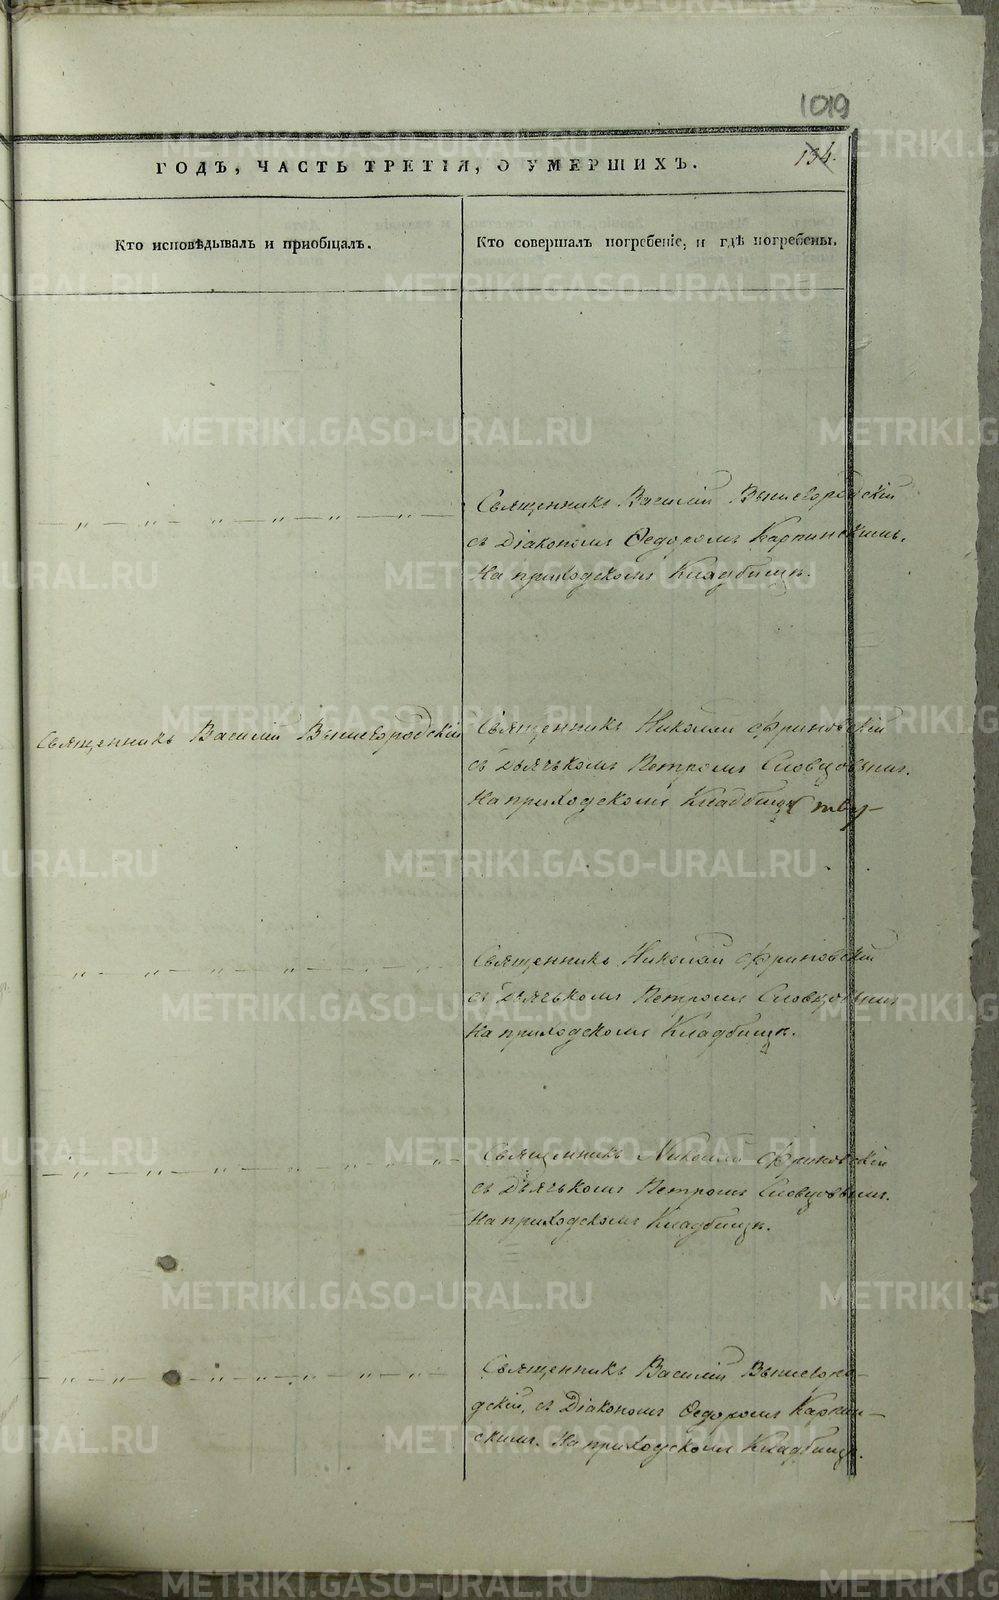 1019
134.
ГОДЪ, ЧАСТЬ ТРЕТІЯ, О УМЕРШИХЪ.
Кто исповѣдывалъ и пріобщалъ.
Кто совершалъ погребеніе, и гдѣ погребены.
— „ — „ — „ — „ —
Священникъ Василій Вышегородскій
съ Діакономъ Ѳедоромъ Карпинскимъ.
На приходскомъ Кладбищѣ.
Священникъ Василій Вышегородскій
Священникъ Николай Фриновскій
съ Дьячькомъ Петромъ Словцовымъ.
На приходскомъ Кладбищѣ
— „ — „ — „ — „ — „ —
Священникъ Николай Фриновскій
съ Дьячькомъ Петромъ Словцовымъ
На приходскомъ Кладбищѣ.
— „ — „ — „ — „ — „ —
Священникъ Николай Фриновскій
съ Дьячькомъ Петромъ Словцовымъ.
На приходскомъ Кладбищѣ.
— „ — „ — „ — „ — „ —
Священникъ Василій Вышегоро-
дскій, съ Діакономъ Ѳедоромъ Карпин-
скимъ. На приходскомъ Кладбищѣ.
METRIKI.GASO-URAL.RU